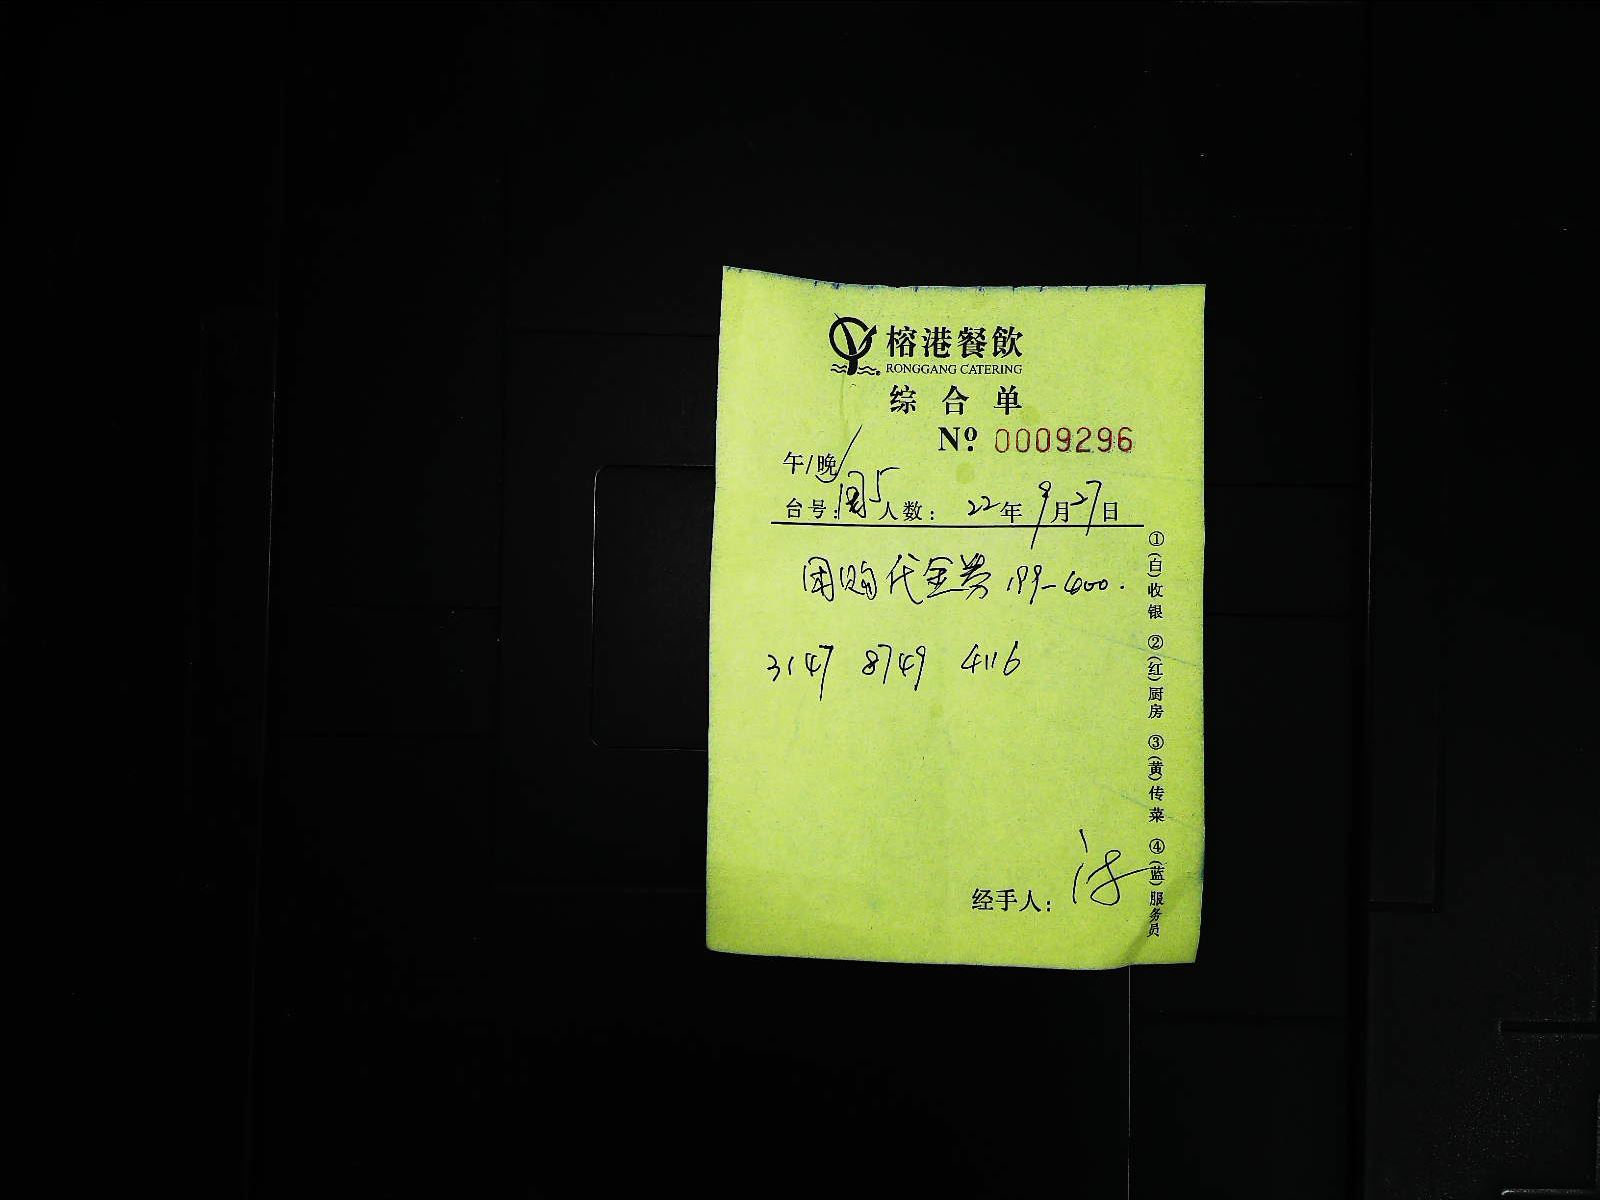 榕港餐飲
RONGGANG CATERING
综合单
Nº 0009296
午/晚
台号: 人数: 22年9月27日
团购代金券 199-400.
3147 8749 4116
经手人:
①(白)收银 ②(红)厨房 ③(黄)传菜 ④(蓝)服务员